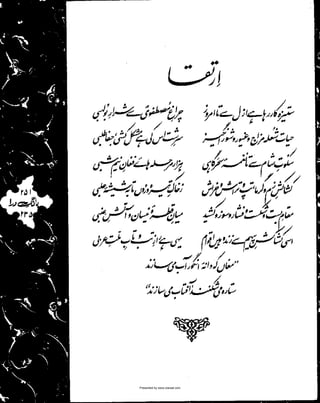 ارتقا
ستیزہ کار رہا ہے ازل سے تا امروز چراغِ مصطفوی سے شرارِ بولہبی
حیات شعلہ مزاج و غیور و شور انگیز سرشت اس کی ہے مشکل کشی، جفا طلبی
سکوتِ شام سے تا نغمۂ سحرگاہی ہزار مرحلہ ہائے فغانِ نیم شبی
کشاکشِ زم و گرما، تپ و تراش و خراش ز خاکِ تیرہ دروں تا بہ شیشۂ حلبی
مقامِ بست و شکست و فشار و سوز و کشید میانِ قطرۂ نیسان و آتشِ عنبی
اسی کشاکشِ پیہم سے زندہ ہیں اقوام یہی ہے رازِ تب و تابِ ملتِ عربی
"مغاں کہ دانۂ انگور آب می سازند
ستارہ می شکنند، آفتاب می سازند"
۲۵۱
بانگِ درا
۲۳۵
Presented by